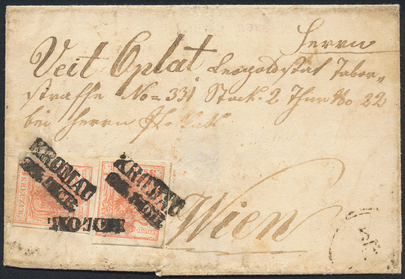 Herrn
Veit Oplat Leopoldstat Tabor-
strasse No= 331 Stock. 2 Thur No 22
bei Herrn
KROMAU
KROMAU
Wien